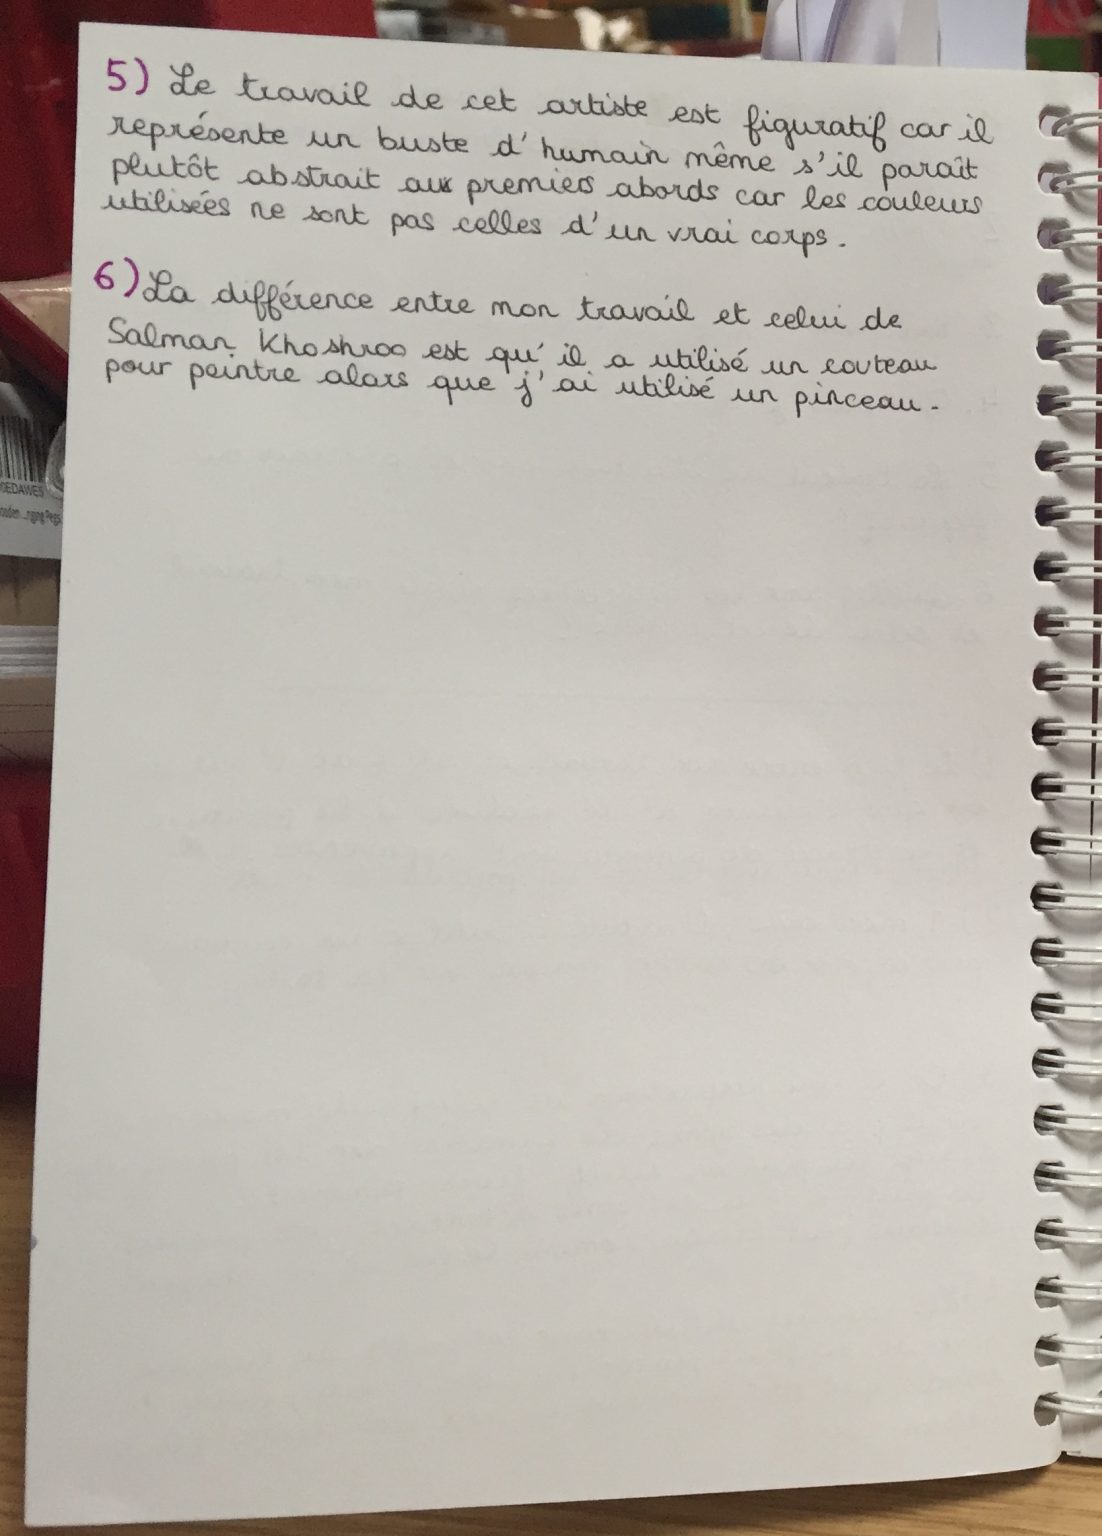 5) Le travail de cet artiste est figuratif car il
représente un buste d'humain même s'il paraît
plutôt abstrait aux premiers abords car les couleurs
utilisées ne sont pas celles d'un vrai corps.
6) La différence entre mon travail et celui de
Salman Khoshroo est qu'il a utilisé un couteau
pour peintre alors que j'ai utilisé un pinceau.
OEDAWES